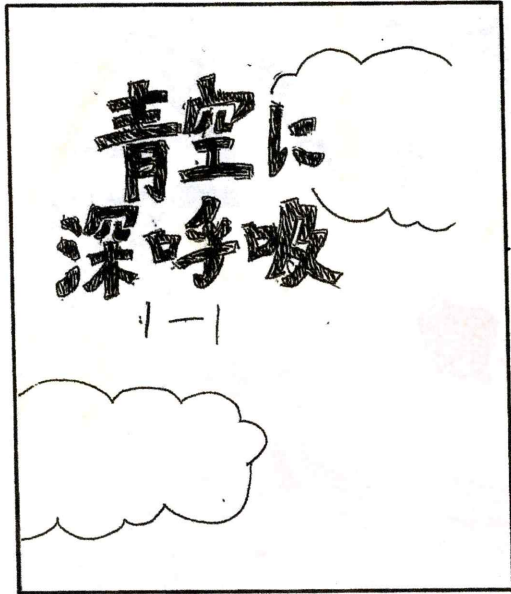 青空に
深呼吸
1-1